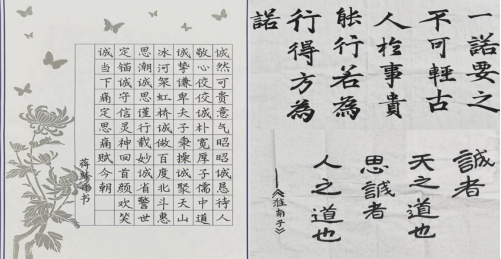 诚然可贵意气昭昭诚恳待人
敬心佼佼诚朴宽厚子儒中道
诚挚谦卑夫子秉操诚聚天山
冰河架虹桥诚做百度北斗惠
思潮诚思谨行载妙诚省警世
定锚诚守信灵神回首颜欢笑
诚当下痛定思痛赋今朝
书
一諾要之
不可輕古
人於事貴
能行若為
行得方為
諾
誠者
天之道也
思誠者
人之道也
——《淮南子》